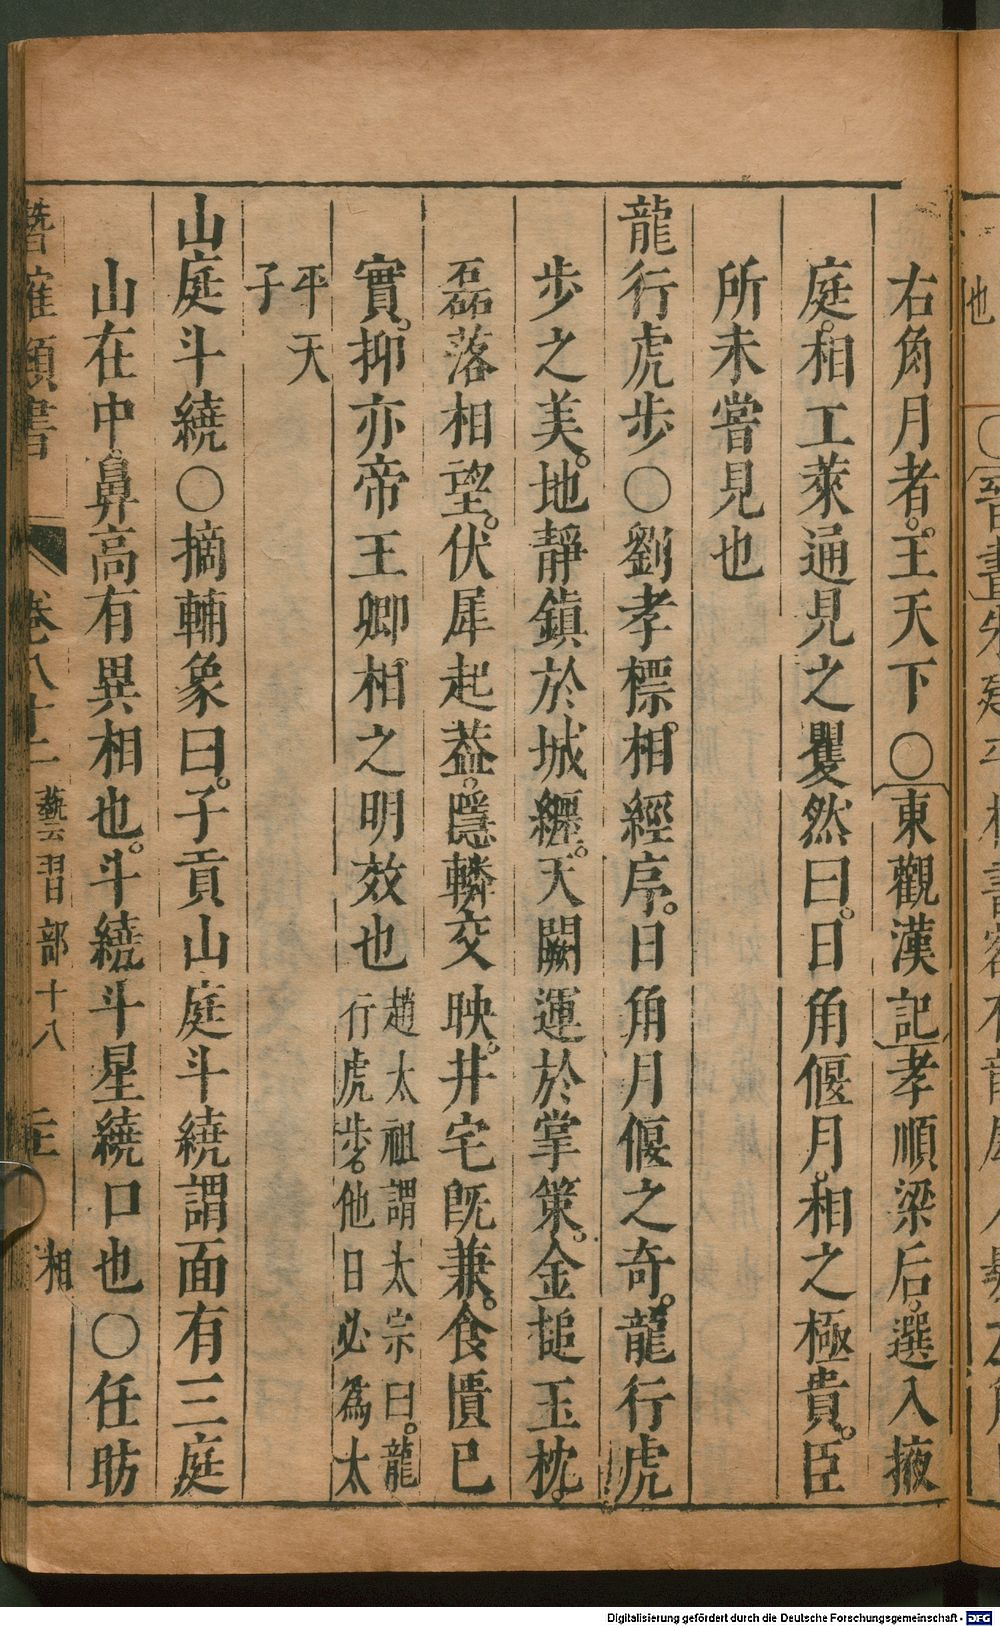 右角月者。王天下〇東觀漢記孝順梁后。選入掖
庭。相工萊通見之矍然曰。日角偃月。相之極貴。臣
所未嘗見也
龍行虎步〇劉孝標。相經序。日角月偃之奇。龍行虎
步之美。地靜鎮於城纒。天闕運於掌策。金搥玉枕。
磊落相望。伏犀起葢。隱轔交映。井宅旣兼。食匱已
實。抑亦帝王卿相之明效也趙太祖謂太宗曰。龍
行虎步。他日必為太
平天
子
山庭斗繞〇摘輔象曰。子貢山庭斗繞謂面有三庭
山在中。鼻高有異相也。斗繞斗星繞口也〇任昉
類書 卷八十二 藝習部十八 相
也 〇晉書
Digitalisierung gefördert durch die Deutsche Forschungsgemeinschaft - DFG